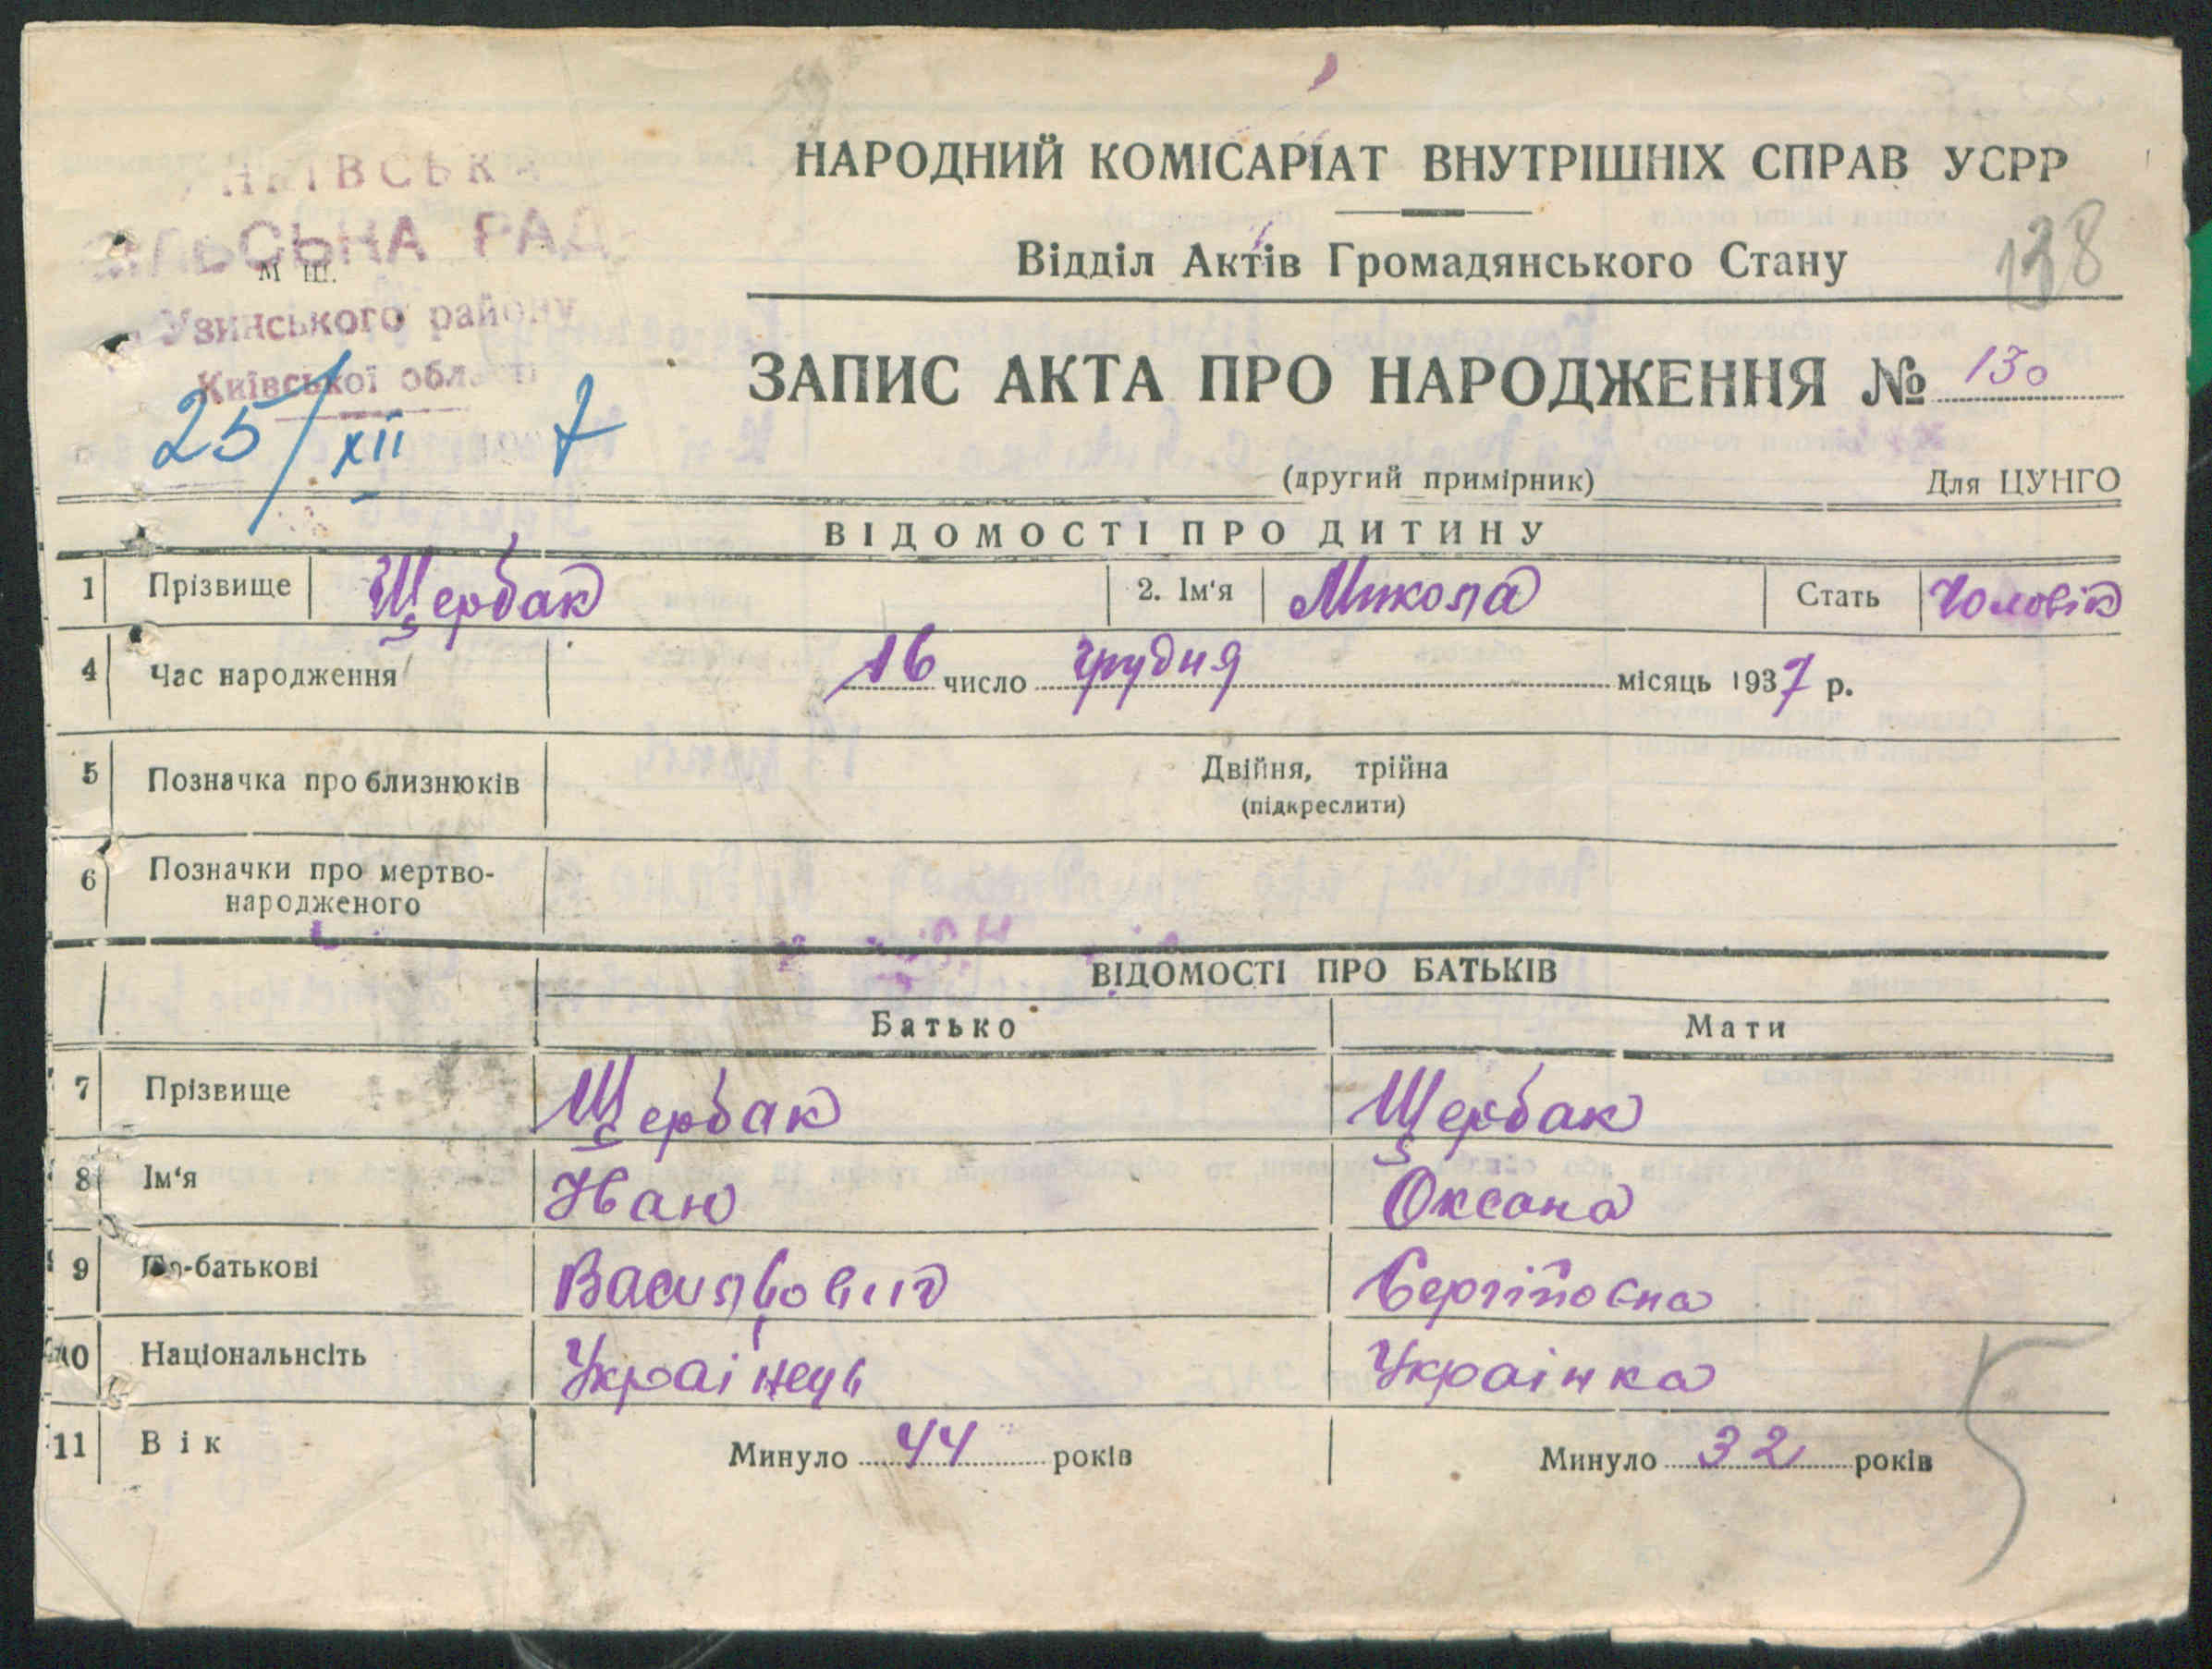 НАРОДНИЙ КОМІСАРІАТ ВНУТРІШНІХ СПРАВ УСРР
СІЛЬСЬКА РАДА
м ш.
Відділ Актів Громадянського Стану
138
Узинського району
Київської області
ЗАПИС АКТА ПРО НАРОДЖЕННЯ № 130
25/XII 7
(другий примірник) Для ЦУНГО
ВІДОМОСТІ ПРО ДИТИНУ
1 Прізвище Щербак 2. Ім'я Микола Стать Чоловік
4 Час народження 16 число грудня місяць 1937 р.
5 Позначка про близнюків Двійня, трійна
(підкреслити)
6 Позначки про мертво-
народженого
ВІДОМОСТІ ПРО БАТЬКІВ
Батько Мати
7 Прізвище Щербак Щербак
8 Ім'я Іван Оксана
9 По-батькові Васильович Сергіївна
10 Національнсіть Українець Українка
11 Вік Минуло 44 років Минуло 32 років
5